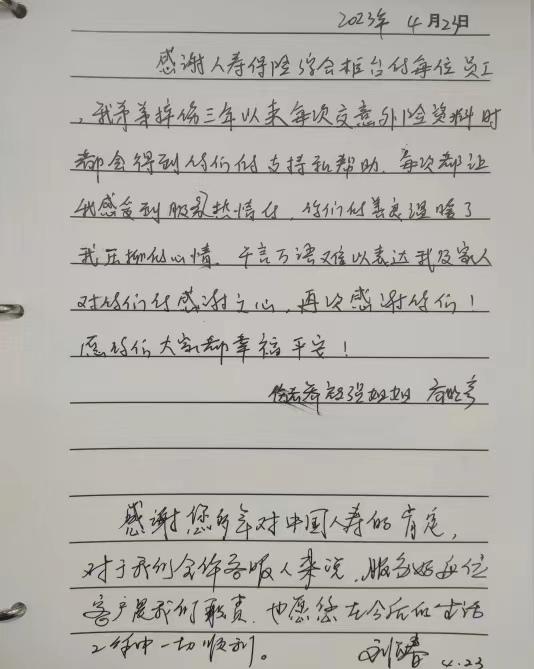 2023年4月23日
感谢人寿保险综合柜台的每位员工
，我弟弟摔伤三年以来每次交意外险资料时
都会得到你们的支持和帮助，每次都让
我感受到服务热情付，你们的善良温暖了
我压抑的心情，千言万语难以表达我及家人
对你们的感谢之心，再次感谢你们！
愿你们大家都幸福平安！
姐姐
感谢您多年对中国人寿的肯定，
对于我们合作客服人来说，服务好每位
客户是我们职责，也愿您在今后的生活
工作中一切顺利。
刘 春 4.23